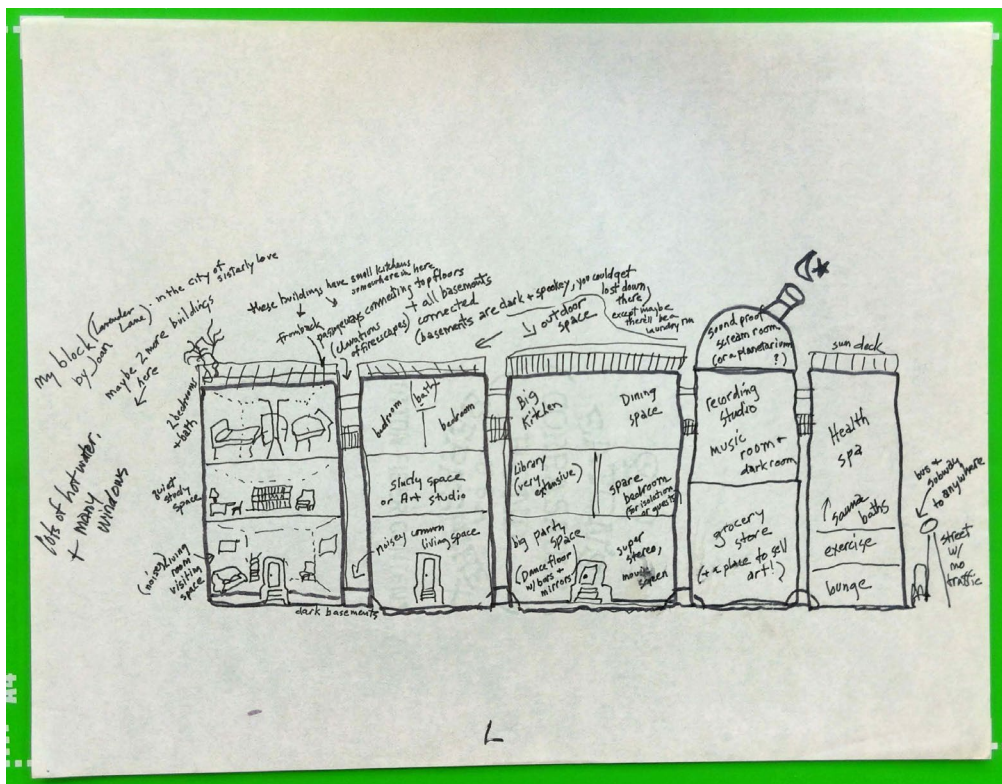 My block (Lavender Lane) - in the city of sisterly love
by Joan
maybe 2 more buildings
here
lots of hot water,
+ many
windows
these buildings have small kitchens
somewhere in here
from back
passageways connecting top floors
(elevations of firescapes)
+ all basements
connected
(basements are dark + spookey, you could get
lost down
there,
except maybe
there'll be a
laundry rm
outdoor
space
2 bedrooms
+ bath
quiet
study
space
(noisey) living
room
visiting
space
dark basements
bedroom
bath
bedroom
study space
or Art studio
noisey common
living space
Big
Kitchen
Dining
space
Library
(very
extensive)
spare
bedroom
(for isolation
or guests)
big party
space
(Dancefloor
w/ bars +
mirrors)
super
stereo,
movie
screen
sound proof
scream room
(or a planetarium
?)
recording
studio
music
room +
darkroom
grocery
store
(+ a place to sell
art!)
sun deck
Health
spa
sauna
baths
exercise
lounge
bus +
subway
to anywhere
street
w/
no
traffic
L